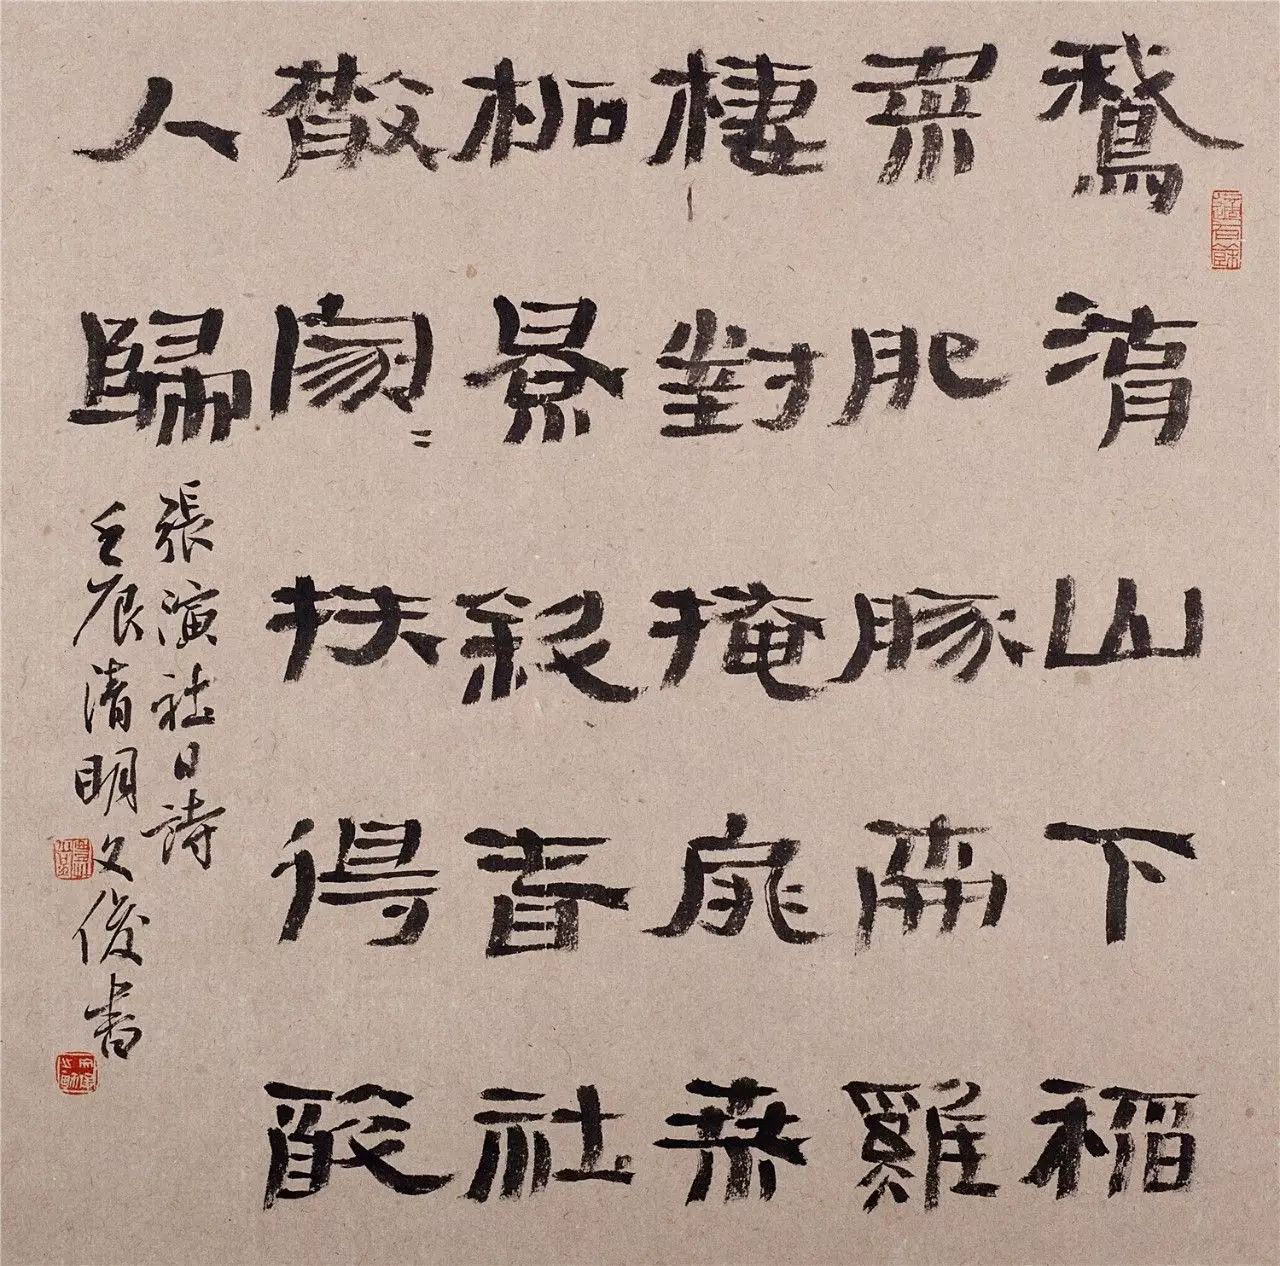 鵞湖山下稻
粱肥豚柵雞
棲對掩扉桑
柘景斜春社
散家〻扶得醉
人歸
張演社日詩
壬辰清明文俊書